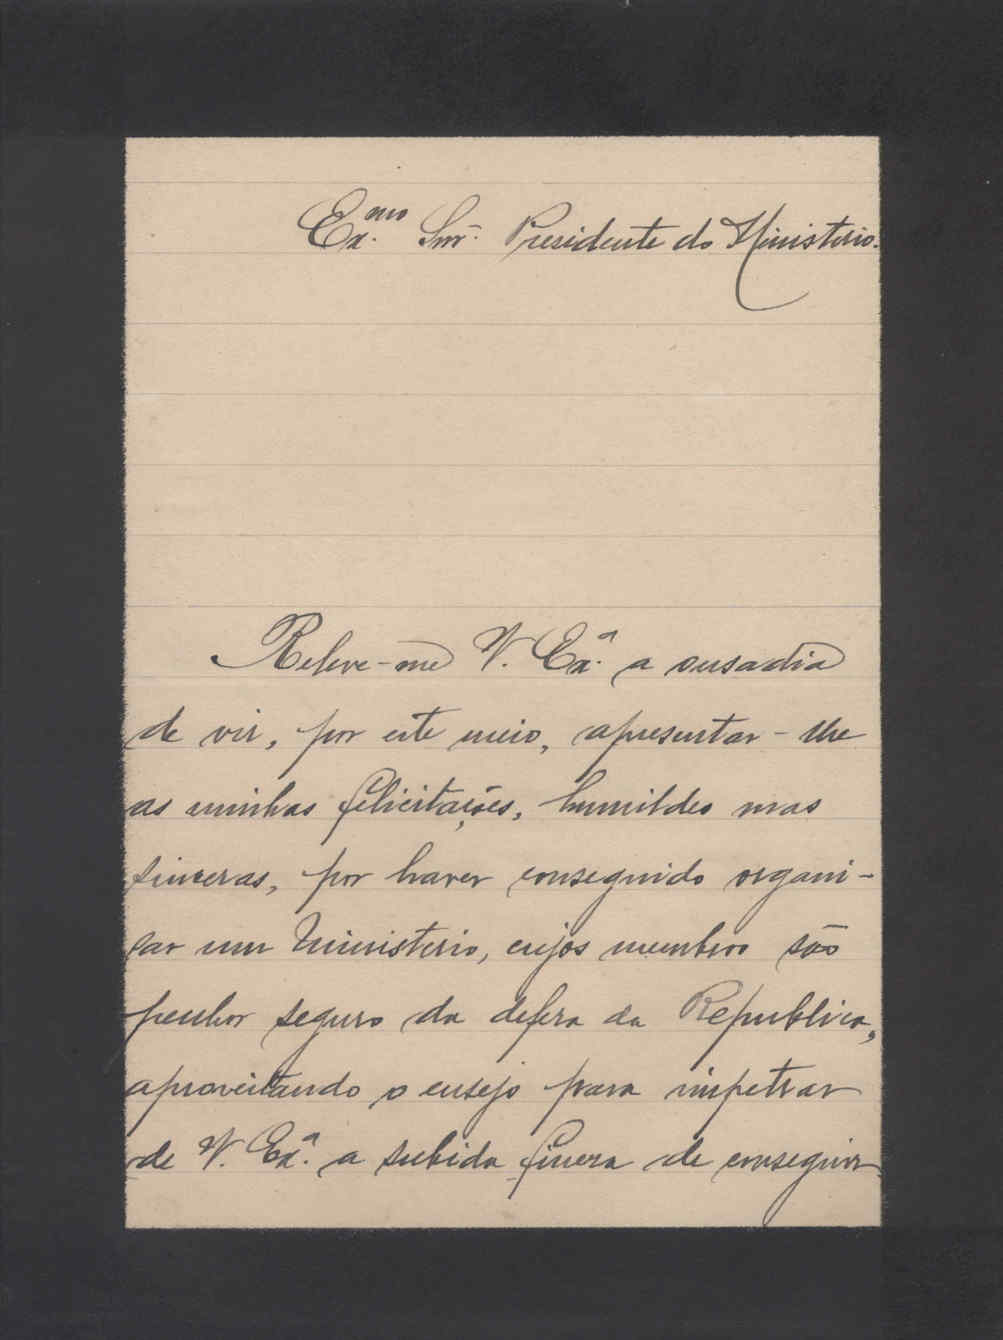 Ex.mo Snr. Presidente do Ministerio.
Releve-me V. Ex.a a ousadia
de vir, por este meio, apresentar-lhe
as minhas felicitações, humildes mas
sinceras, por haver conseguido organi-
sar um Ministerio, cujos membros são
penhor seguro da defesa da Republica,
aproveitando o ensejo para impetrar
de V. Ex.a a subida fineza de conseguir